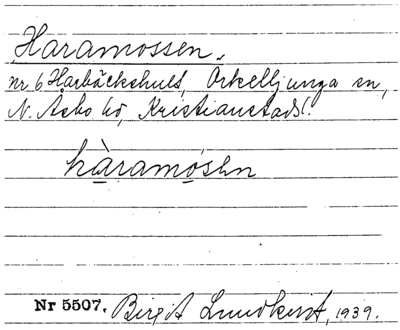 Haramossen,
nr 6 Harbäckshult, Örkelljunga sn,
N. Åsbo hd, Kristianstads l.
hàramósen
Nr 5507. Birgit Lundkvist, 1939.